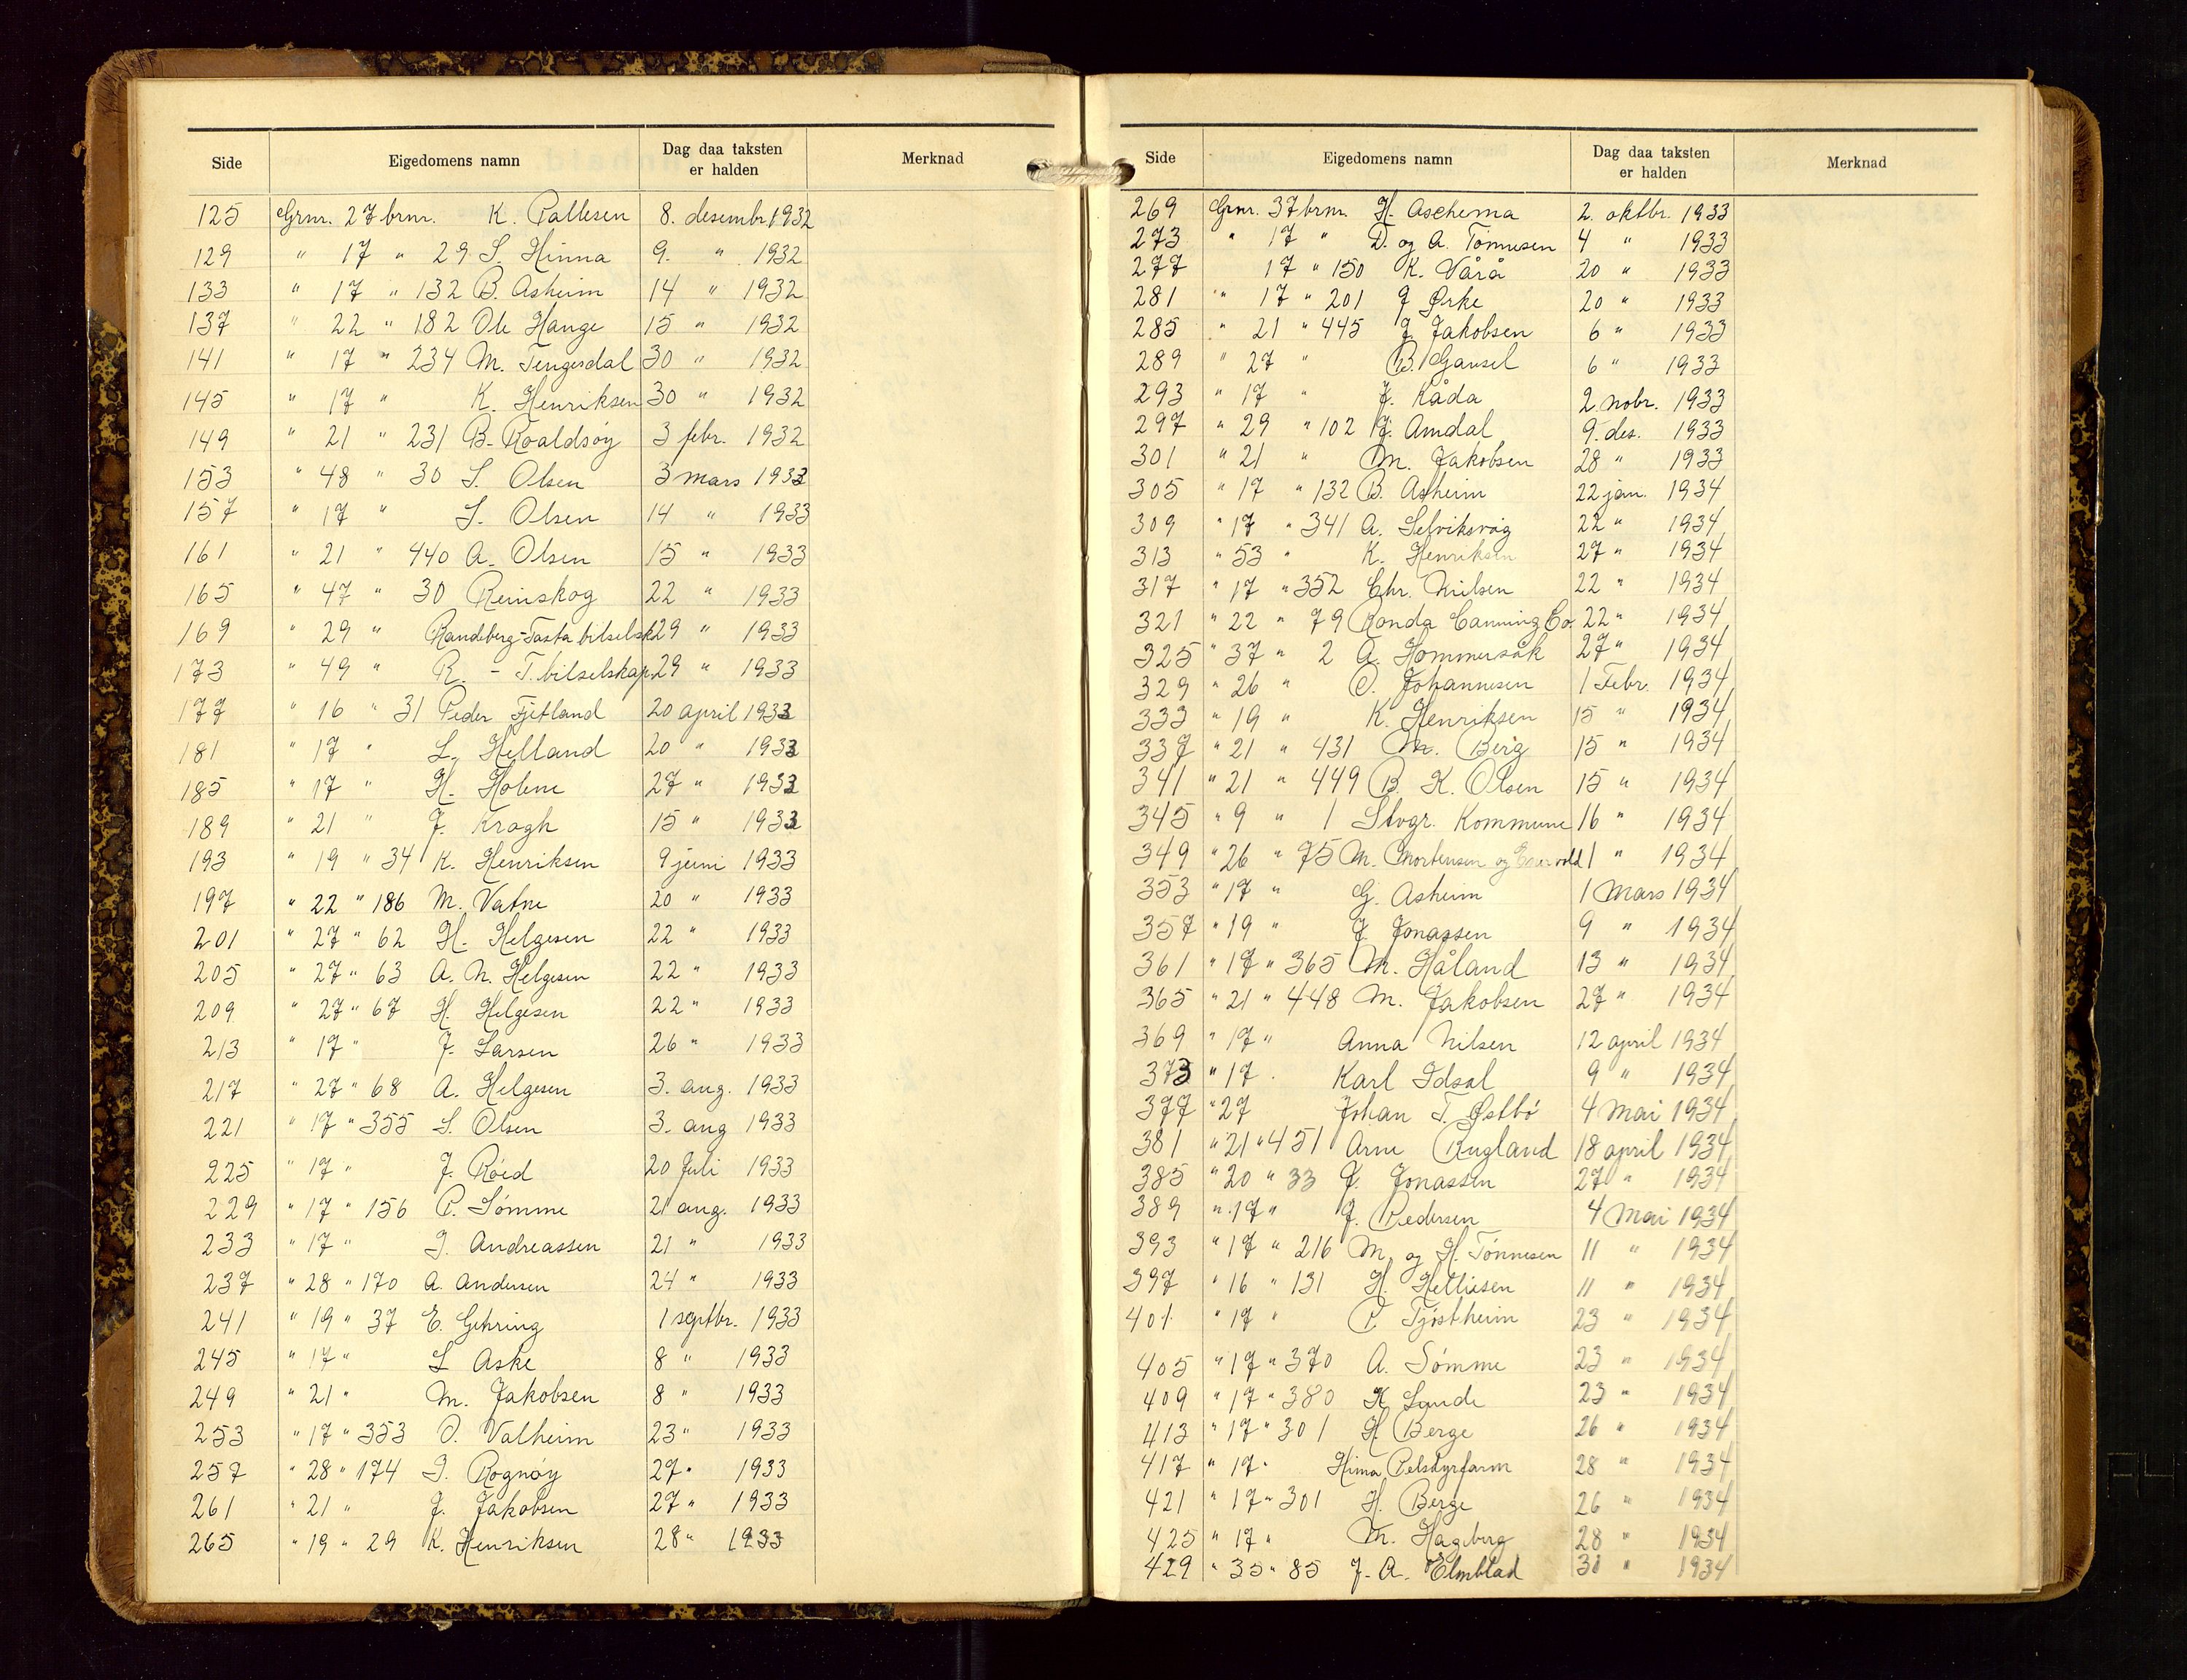 Side Eigedomens namn Dag daa taksten er halden Merknad
125 Grnr. 27 brnr. K. Pallesen 8. desembr. 1932
129 " 17 " 29 S. Hinna 9. " 1932
133 " 17 " 132 B. Asheim 14 " 1932
137 " 22 " 182 Ole Hauge 15 " 1932
141 " 17 " 234 M. Tengesdal 30 " 1932
145 " 17 " K. Henriksen 30 " 1932
149 " 21 " 231 B. Roaldsøy 3 febr. 1932
153 " 48 " 30 S. Olsen 3 mars 1933
157 " 17 " S. Olsen 14 " 1933
161 " 21 " 440 A. Olsen 15 " 1933
165 " 47 " 30 Reinskog 22 " 1933
169 " 29 " Randeberg-Tasta bilselsk. 29 " 1933
173 " 49 " R. - T. bilselskap. 29 " 1933
177 " 16 " 31 Peder Fjetland 20 april 1933
181 " 17 " L. Helland 20 " 1933
185 " 17 " H. Holme 27 " 1933
189 " 21 " J. Kragh 15 " 1933
193 " 19 " 34 K. Henriksen 9 juni 1933
197 " 22 " 186 M. Vatne 20 " 1933
201 " 27 " 62 H. Helgesen 22 " 1933
205 " 27 " 63 A. N. Helgesen 22 " 1933
209 " 27 " 67 H. Helgesen 22 " 1933
213 " 17 " J. Larsen 26 " 1933
217 " 27 " 68 A. Helgesen 3. aug. 1933
221 " 17 " 355 S. Olsen 3. aug 1933
225 " 17 " J. Røed 20 Juli 1933
229 " 17 " 156 P. Sømme 21 aug. 1933
233 " 17 " J. Andreassen 21 " 1933
237 " 28 " 170 A. Andersen 24 " 1933
241 " 19 " 37 E. Gehring 1 septbr. 1933
245 " 17 " L Aske 8 " 1933
249 " 21 " M. Jakobsen 8 " 1933
253 " 17 " 353 O. Valheim 23 " 1933
257 " 28 " 174 J. Rognøy 27 " 1933
261 " 21 " J. Jakobsen 27 " 1933
265 " 19 " 29 K. Henriksen 28 " 1933
Side Eigedomens namn Dag daa taksten er halden Merknad
269 Grnr. 37 brnr. H. Aschema 2. oktbr. 1933
273 " 17 " D. og A. Tønnesen 4 " 1933
277 17 " 150 K. Vårå 20 " 1933
281 " 17 " 201 J Ørke 20 " 1933
285 " 21 " 445 J. Jakobsen 6 " 1933
289 " 27 " B. Gausel 6 " 1933
293 " 17 " J. Kåda 2. nobr. 1933
297 " 29 " 102 J. Amdal 9. des. 1933
301 " 21 " M. Jakobsen 28 " 1933
305 " 17 " 132 B. Asheim 22 jan. 1934
309 " 17 " 341 A. Selviksvåg 22 " 1934
313 " 53 " K. Henriksen 27 " 1934
317 " 17 " 352 Chr. Nilsen 22 " 1934
321 " 22 " 79 Ronda Canning Co. 22 " 1934
325 " 37 " 2 A. Hommersåk 27 " 1934
329 " 26 " O. Johannesen 1 Febr. 1934
333 " 19 " K. Henriksen 15 " 1934
337 " 21 " 431 M. Berg 15 " 1934
341 " 21 " 449 B. K. Olsen 15 " 1934
345 " 9 " 1 Stvgr. Kommune 16 " 1934
349 " 26 " 75 M. Mortensen og 1 " 1934
353 " 17 " G. Asheim 1 Mars 1934
357 " 19 " J. Jonassen 9 " 1934
361 " 17 " 365 M. Håland 13 " 1934
365 " 21 " 448 M. Jakobsen 27 " 1934
369 " 17 " Anna Nilsen 12 april 1934
373 " 17 . Karl Idsal 9 " 1934
377 " 27 Johan T. Østbø 4 Mai 1934
381 " 21 " 451 Arne Rugland 18 april 1934
385 " 20 " 33 J. Jonassen 27 " 1934
389 " 17 " J. Pedersen 4 Mai 1934
393 " 17 " 216 M. og H. Tønnesen 11 " 1934
397 " 16 " 131 H. Helliesen 11 " 1934
401 " 17 " P. Tjøstheim 23 " 1934
405 " 17 " 370 A. Sømme 23 " 1934
409 " 17 " 380 K Lunde 23 " 1934
413 " 17 " 301 H Berge 26 " 1934
417 " 17 " Hinna Pelsdyrfarm 28 " 1934
421 " 17 " 301 H. Berge 26 " 1934
425 " 17 " M. Hageberg 28 " 1934
429 " 35 " 85 J. A. Elmblad 30 " 1934